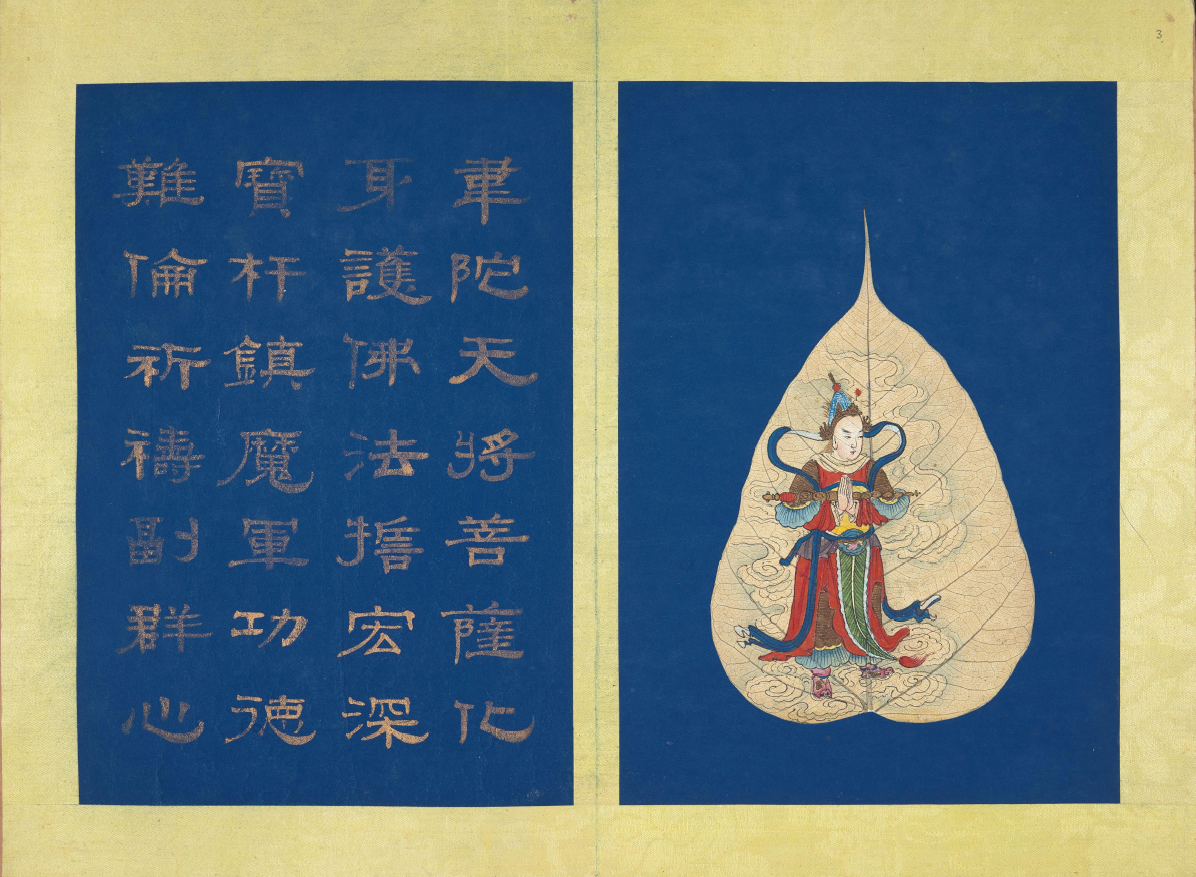 3
韋陀天將菩薩化
身護佛法誓宏深
寶杵鎮魔軍功德
難倫祈禱副群心